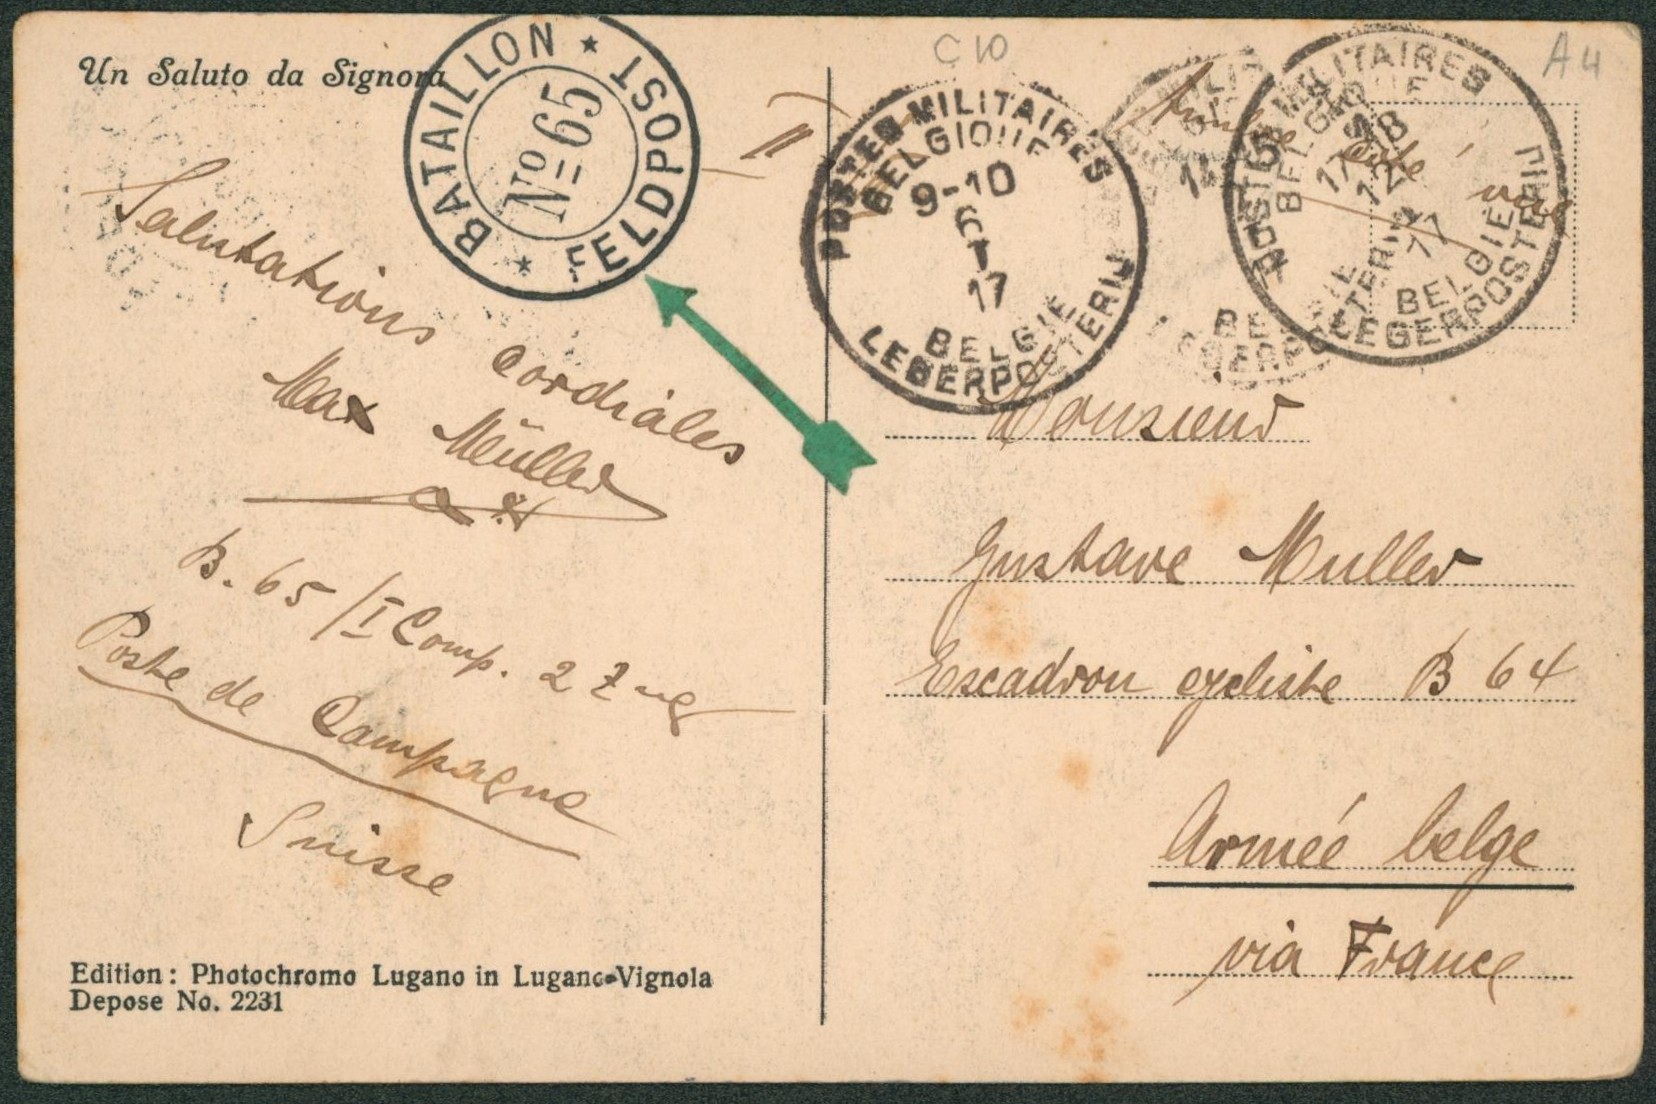 Un Saluto da Signora
BATAILLON ★ FELDPOST ★
No 65
C10
A4
POSTES MILITAIRES
BELGIQUE
9-10
6
I
17
BELGIE
LEGERPOSTERIJ
POSTES MILITAIRES
BELGIQUE
17-18
17
BELGIE
LEGERPOSTERIJ
Salutations Cordiales
Max Müller
B. 65/I Comp. 2 Zug
Poste de Campagne
Suisse
Monsieur
Gustave Muller
Escadron cycliste B 64
Armée belge
via France
Edition: Photochromo Lugano in Lugano-Vignola
Depose No. 2231